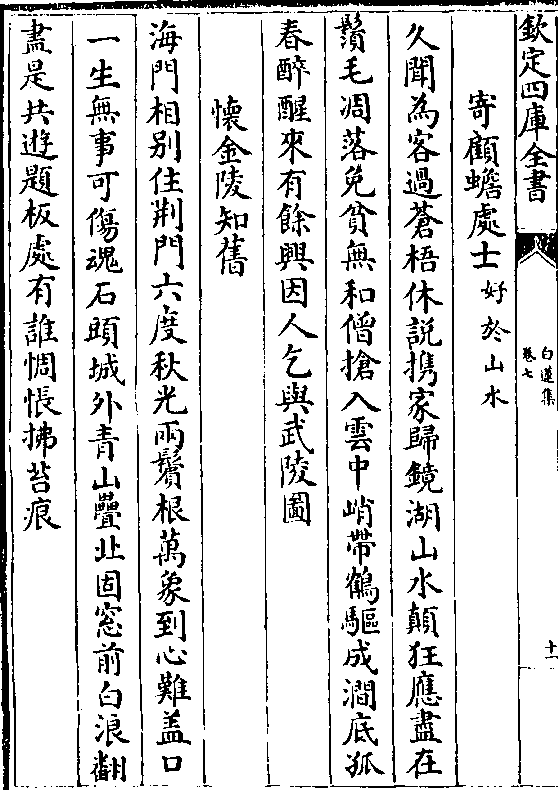 欽定四庫全書
白蓮集
卷七
十一
寄顧蟾處士好於山水
久聞為客過蒼梧休説携家歸鏡湖山水顛狂應盡在
鬢毛凋落免貧無和僧搶入雲中峭帶鶴驅成澗底孤
春醉醒來有餘興因人乞與武陵圖
懷金陵知舊
海門相别住荆門六度秋光兩鬢根萬象到心難盖口
一生無事可傷魂石頭城外青山疊北固窓前白浪翻
盡是共遊題板處有誰惆悵拂苔痕